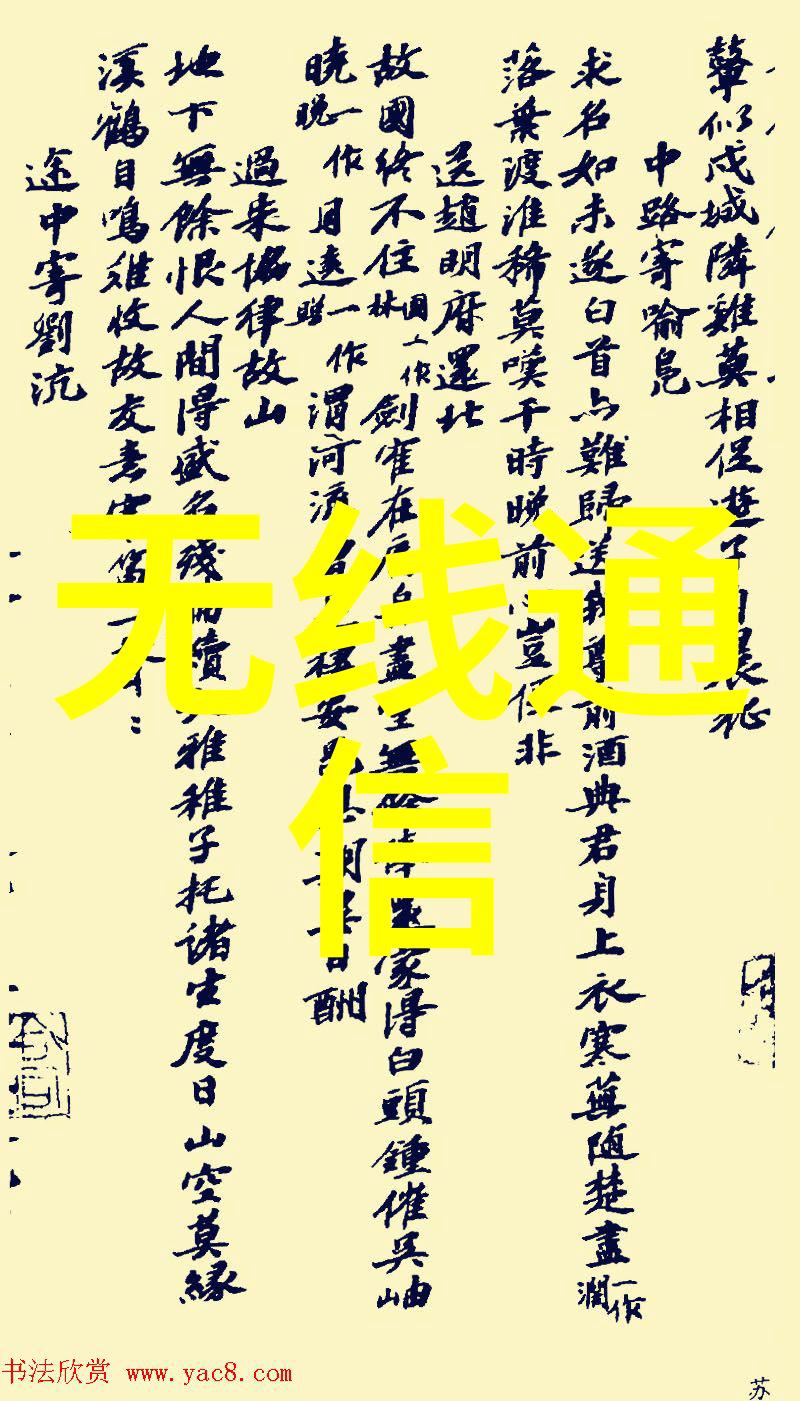 聲似戍城隣雞莫相促遊子自晨征
中路寄喻凫
求名如未遂白首亦難歸送我尊前酒典君身上衣寒蕪隨楚盡一作澗
落葉渡淮稀莫嘆干時晚前心豈便非
送趙明府還北
故國終不住國一作林劍雀在
盡
無
家得白頭鍾催吳岫
曉一作晚月遠一作照渭河流
安
日酬
過朱協律故山
地下無餘恨人間得盛名殘
續大雅稚子托諸生度日山空莫緣
溪鶴自鳴難收故友
途中寄劉沆
无线通
信
书法欣赏 www.yac8.com
苏